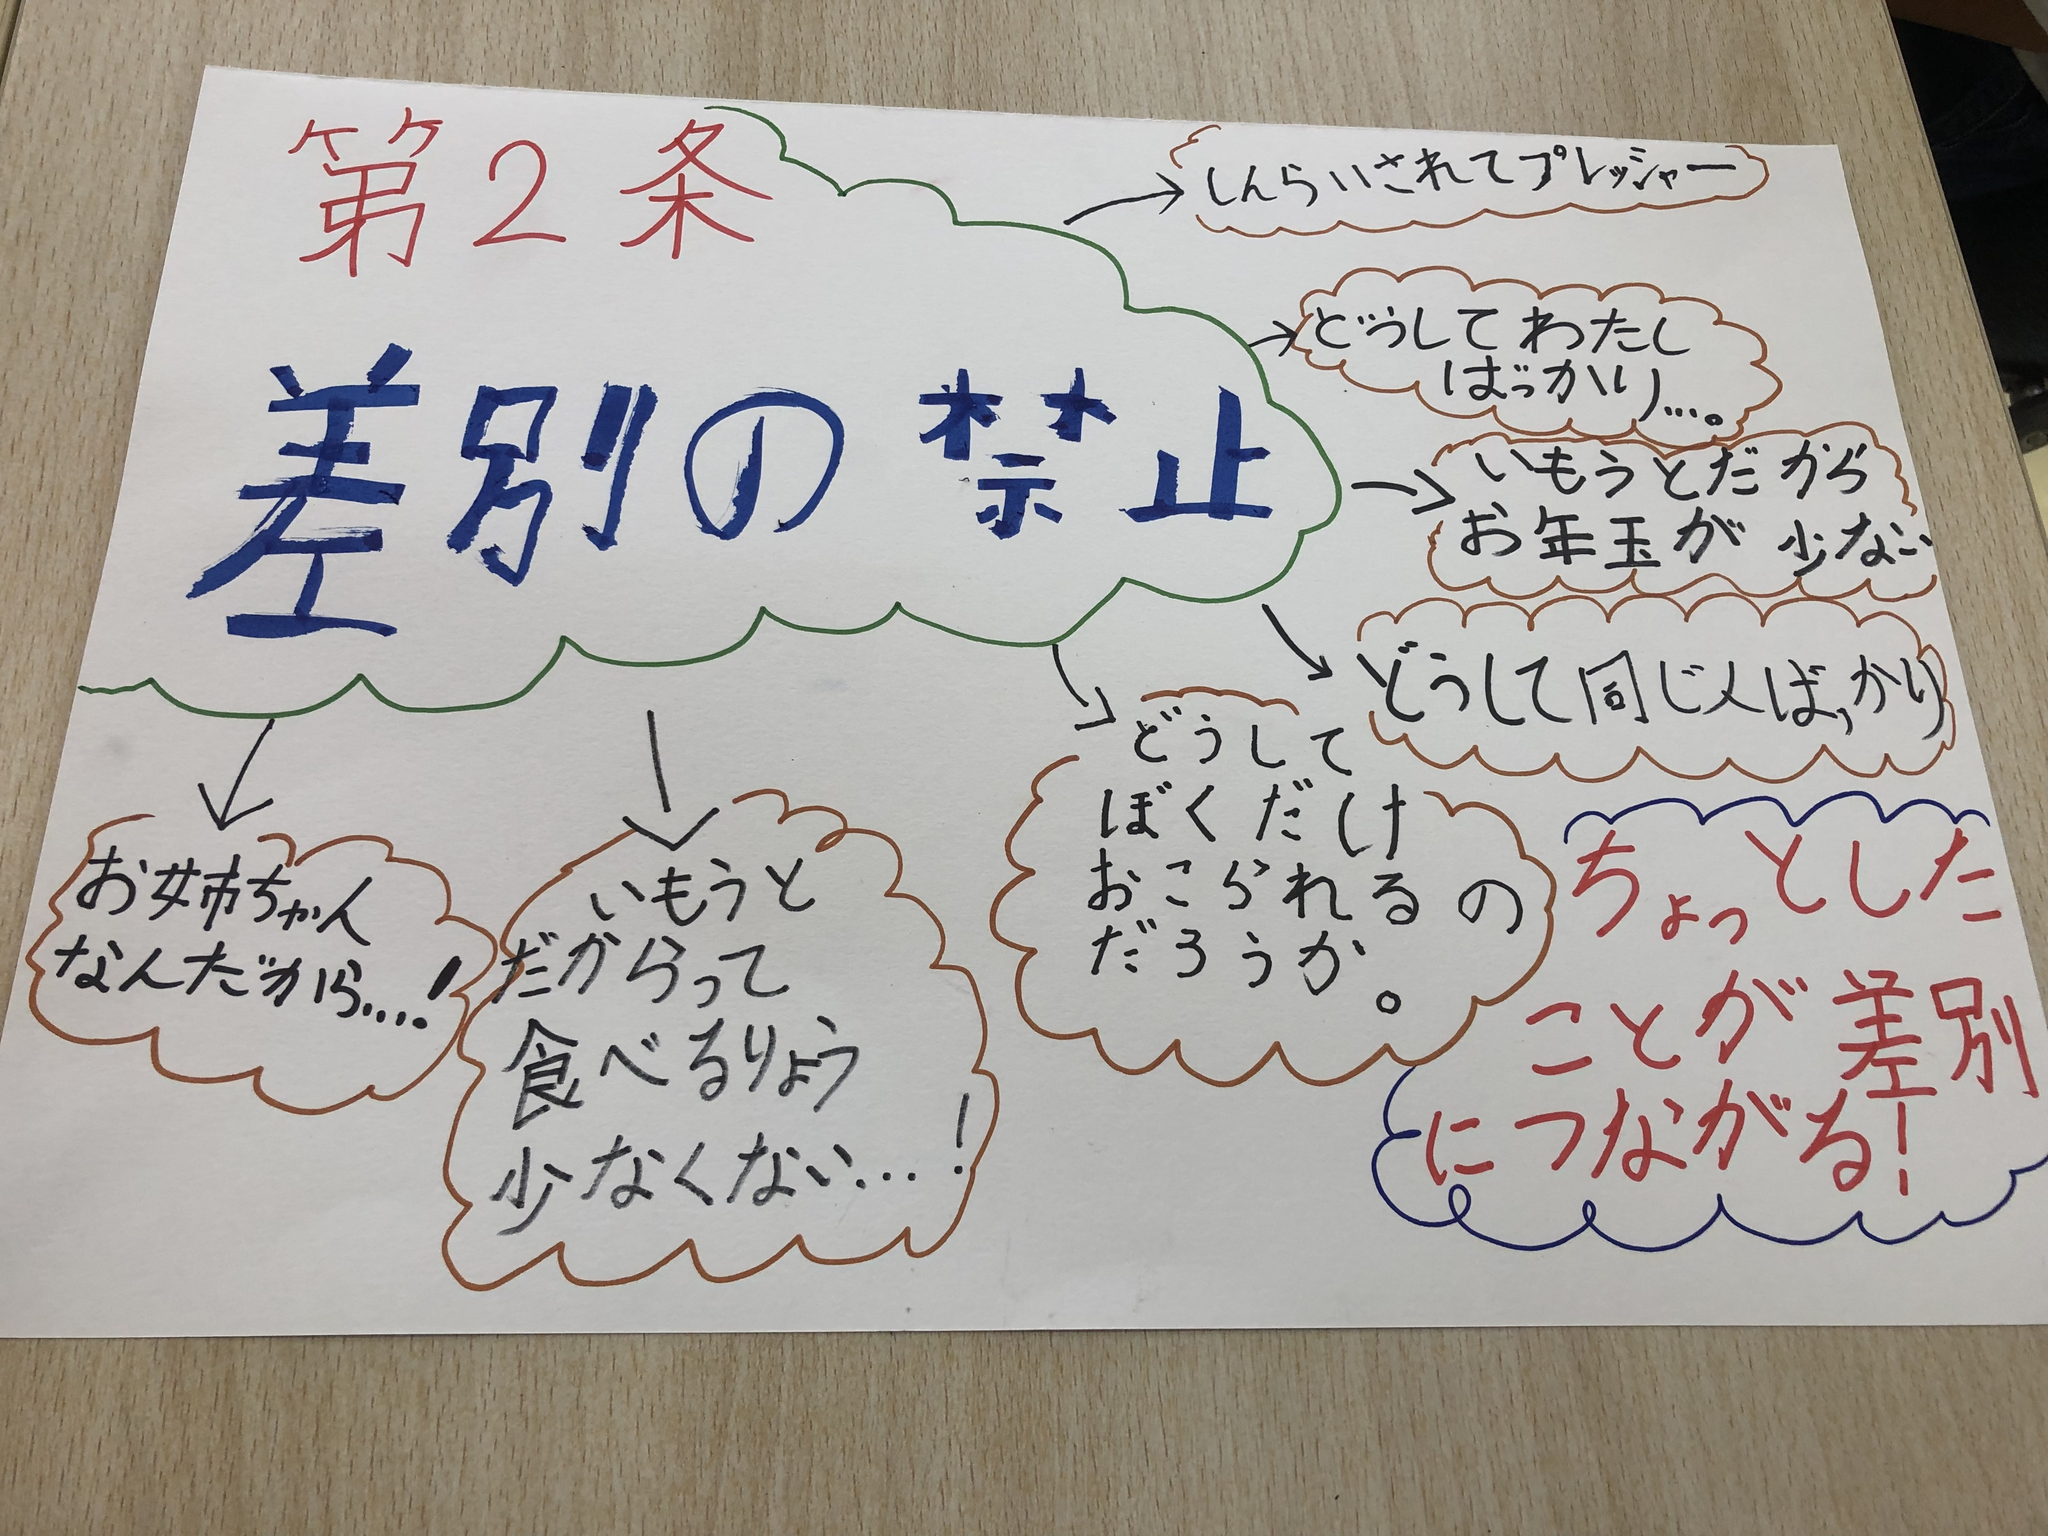 第2条
差別の禁止
しんらいされてプレッシャー
どうしてわたし
ばっかり…。
いもうとだから
お年玉が少ない
どうして同じ人ばっかり
どうして
ぼくだけ
おこられるの
だろうか。
いもうと
だからって
食べるりょう
少なくない…!
お姉ちゃん
なんだから…!
ちょっとした
ことが差別
につながる!